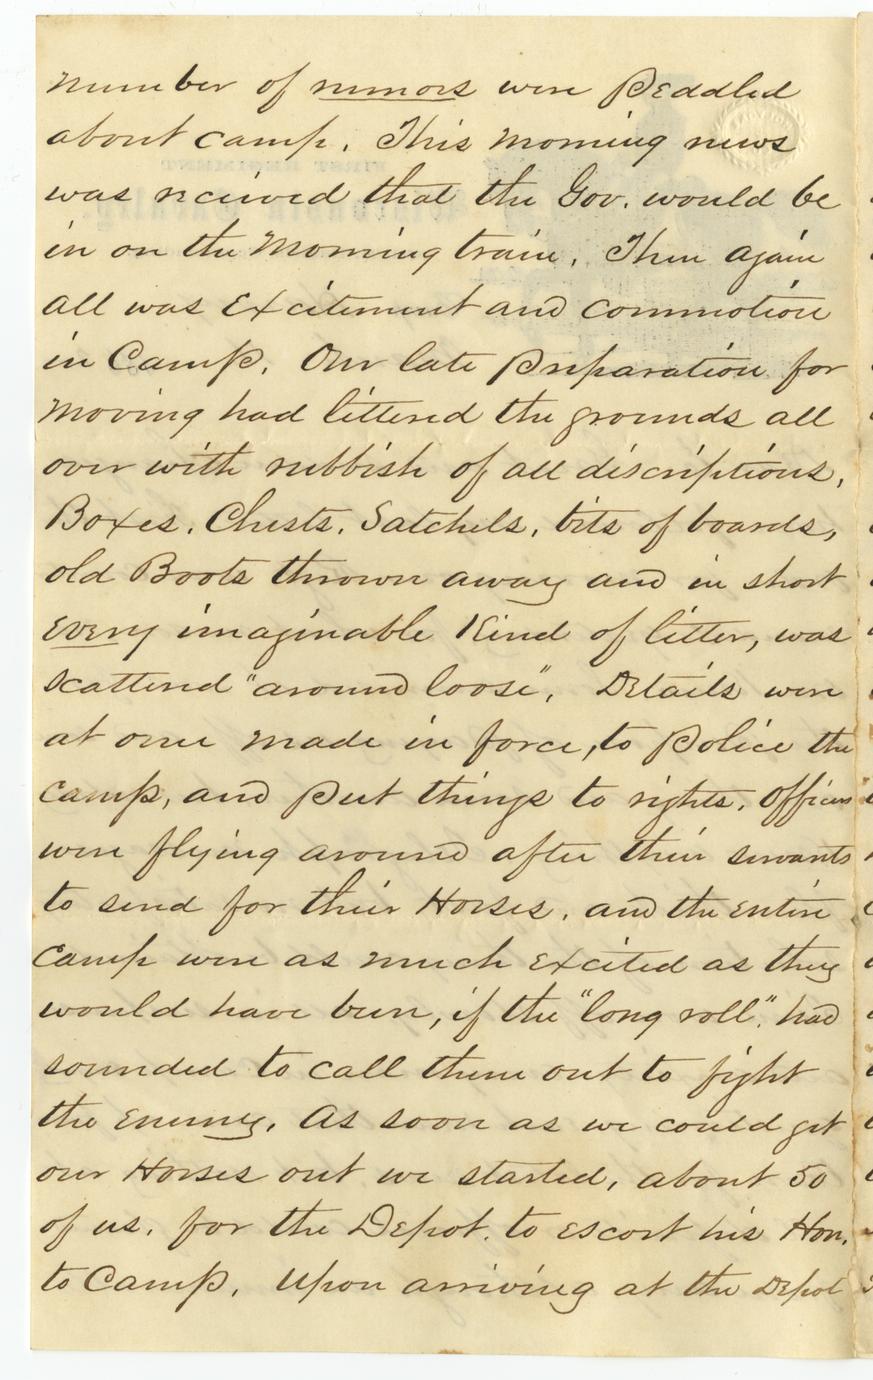 number of rumors were Peddled
about camp. This morning news
was rceived that the Gov. would be
in on the Morning train. Then again
all was Excitement and commotion
in Camp. Our late Preparation for
Moving had littered the grounds all
over with rubbish of all discriptions,
Boxes. Chests. Satchels. bits of boards,
old Boots thrown away and in short
Every imaginable Kind of litter, was
scattered "around loose". Details were
at once made in force, to Police the
camp, and Put things to rights. Officers
were flying around after their servants
to send for their Horses. and the Entire
Camp were as much Excited as they
would have been, if the "long roll". had
sounded to call them out to fight
the Enemy. As soon as we could get
our Horses out we started, about 50
of us. for the Depot. to Escort his Hon.
to Camp. Upon arriving at the Depot